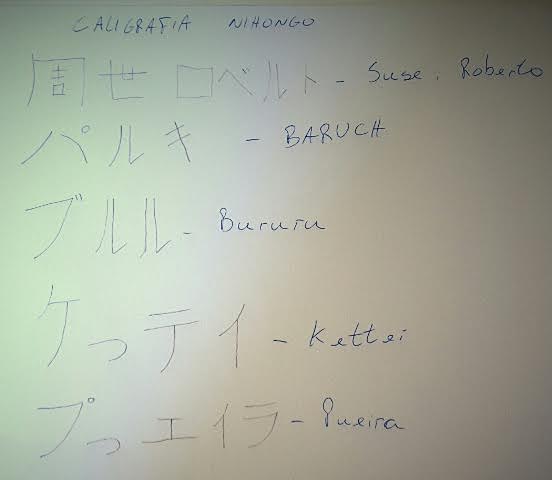 CALIGRAFIA NIHONGO
周世 ロベルト - Suse, Roberto
パルキ - BARUCH
ブルル - Bururu
ケっテイ - Kettei
プっエイラ - Pueira